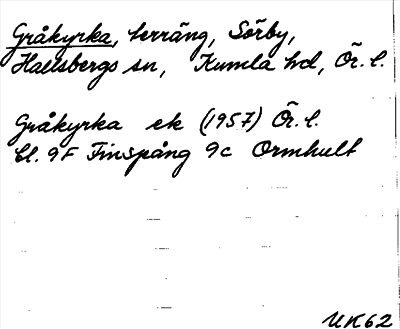 Gråkyrka, terräng, Sörby,
Hallsbergs sn, Kumla hd, Ör. l.
Gråkyrka ek (1957) Ör. l.
bl. 9F Finspång 9c Ormhult
UK62